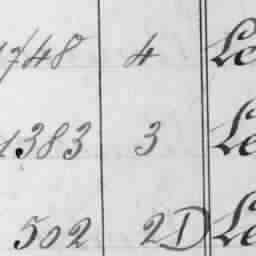 1748 4 Le
1383 3 Le
502 2D Le